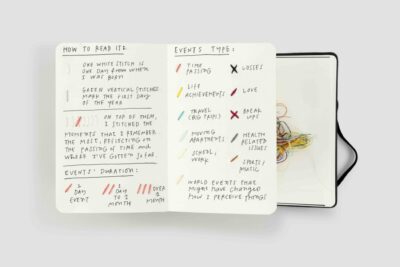 HOW TO READ IT:
ONE WHITE STITCH IS
ONE DAY FROM WHEN
I WAS BORN
GREEN VERTICAL STITCHES
MARK THE FIRST DAY
OF THE YEAR
ON TOP OF THEM,
I STITCHED THE
MOMENTS THAT I REMEMBER
THE MOST, REFLECTING ON
THE PASSING OF TIME AND
WHERE I'VE GOTTEN SO FAR.
EVENTS' DURATION:
1
DAY
EVENT
1 DAY
TO 1
MONTH
OVER
1
MONTH
EVENTS TYPE:
TIME
PASSING
LIFE
ACHIEVEMENTS
TRAVEL
(BIG TRIPS)
MOVING
APARTMENTS
SCHOOL,
WORK
LOSSES
LOVE
BREAK
UPS
HEALTH
RELATED
ISSUES
SPORTS/
MUSIC
WORLD EVENTS THAT
MIGHT HAVE CHANGED
HOW I PERCEIVE THINGS